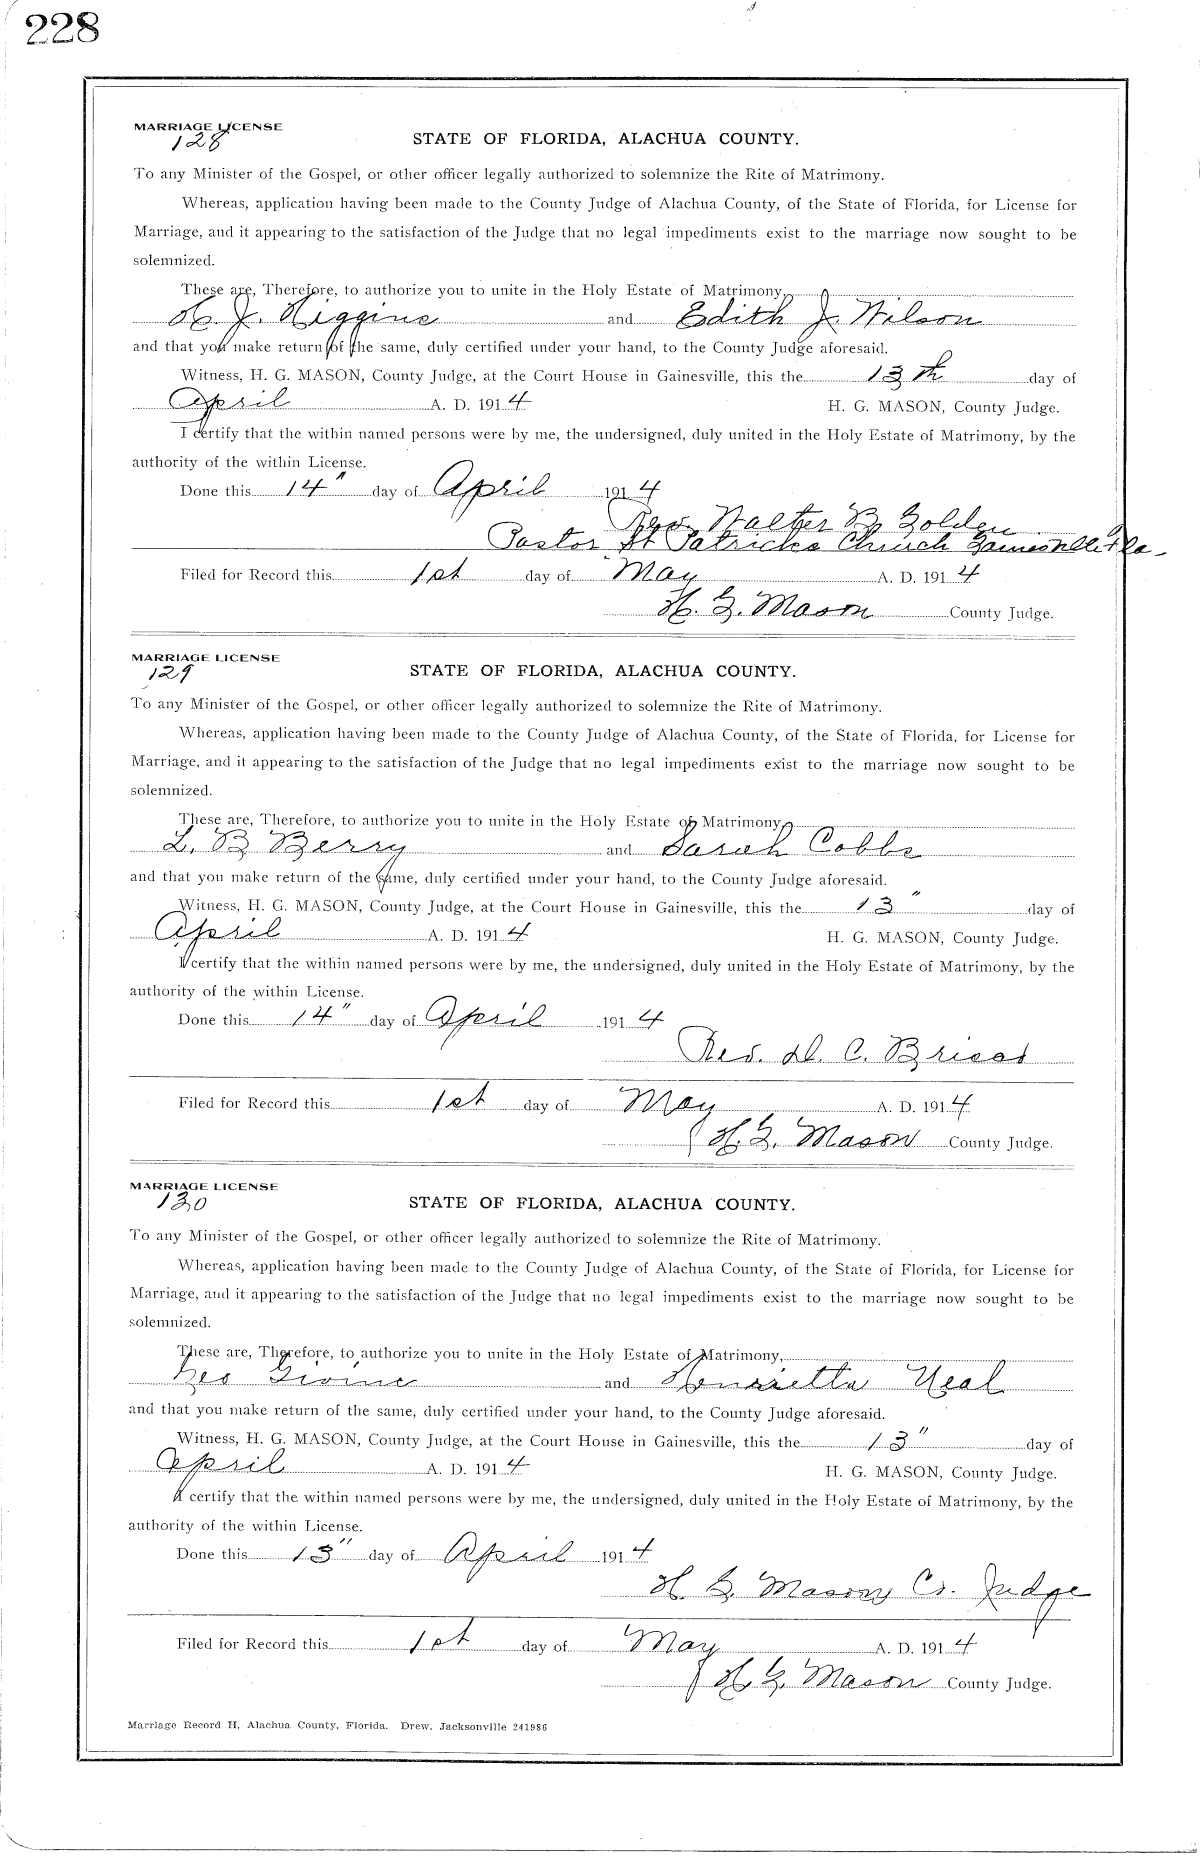 228
MARRIAGE LICENSE
128
STATE OF FLORIDA, ALACHUA COUNTY.
To any Minister of the Gospel, or other officer legally authorized to solemnize the Rite of Matrimony.
Whereas, application having been made to the County Judge of Alachua County, of the State of Florida, for License for
Marriage, and it appearing to the satisfaction of the Judge that no legal impediments exist to the marriage now sought to be
solemnized.
These are, Therefore, to authorize you to unite in the Holy Estate of Matrimony,
H. J. Higgins and Edith J. Wilson
and that you make return of the same, duly certified under your hand, to the County Judge aforesaid.
Witness, H. G. MASON, County Judge, at the Court House in Gainesville, this the 13th day of
April A. D. 1914 H. G. MASON, County Judge.
I certify that the within named persons were by me, the undersigned, duly united in the Holy Estate of Matrimony, by the
authority of the within License.
Done this 14" day of April 1914
Rev. Walter B. Golden
Pastor St Patricks Church Gainesville Fla.
Filed for Record this 1st day of May A. D. 1914
H. G. Mason County Judge.
MARRIAGE LICENSE
129
STATE OF FLORIDA, ALACHUA COUNTY.
To any Minister of the Gospel, or other officer legally authorized to solemnize the Rite of Matrimony.
Whereas, application having been made to the County Judge of Alachua County, of the State of Florida, for License for
Marriage, and it appearing to the satisfaction of the Judge that no legal impediments exist to the marriage now sought to be
solemnized.
These are, Therefore, to authorize you to unite in the Holy Estate of Matrimony,
L. B Berry and Sarah Cobbs
and that you make return of the same, duly certified under your hand, to the County Judge aforesaid.
Witness, H. G. MASON, County Judge, at the Court House in Gainesville, this the 13" day of
April A. D. 1914 H. G. MASON, County Judge.
I certify that the within named persons were by me, the undersigned, duly united in the Holy Estate of Matrimony, by the
authority of the within License.
Done this 14" day of April 1914
Rev. D. C.
Filed for Record this 1st day of May A. D. 1914
H. G. Mason County Judge.
MARRIAGE LICENSE
130
STATE OF FLORIDA, ALACHUA COUNTY.
To any Minister of the Gospel, or other officer legally authorized to solemnize the Rite of Matrimony.
Whereas, application having been made to the County Judge of Alachua County, of the State of Florida, for License for
Marriage, and it appearing to the satisfaction of the Judge that no legal impediments exist to the marriage now sought to be
solemnized.
These are, Therefore, to authorize you to unite in the Holy Estate of Matrimony,
Geo and Henrietta Neal
and that you make return of the same, duly certified under your hand, to the County Judge aforesaid.
Witness, H. G. MASON, County Judge, at the Court House in Gainesville, this the 13" day of
April A. D. 1914 H. G. MASON, County Judge.
I certify that the within named persons were by me, the undersigned, duly united in the Holy Estate of Matrimony, by the
authority of the within License.
Done this 13" day of April 1914
H. G. Mason Co. Judge
Filed for Record this 1st day of May A. D. 1914
H. G. Mason County Judge.
Marriage Record H, Alachua County, Florida. Drew, Jacksonville 241986